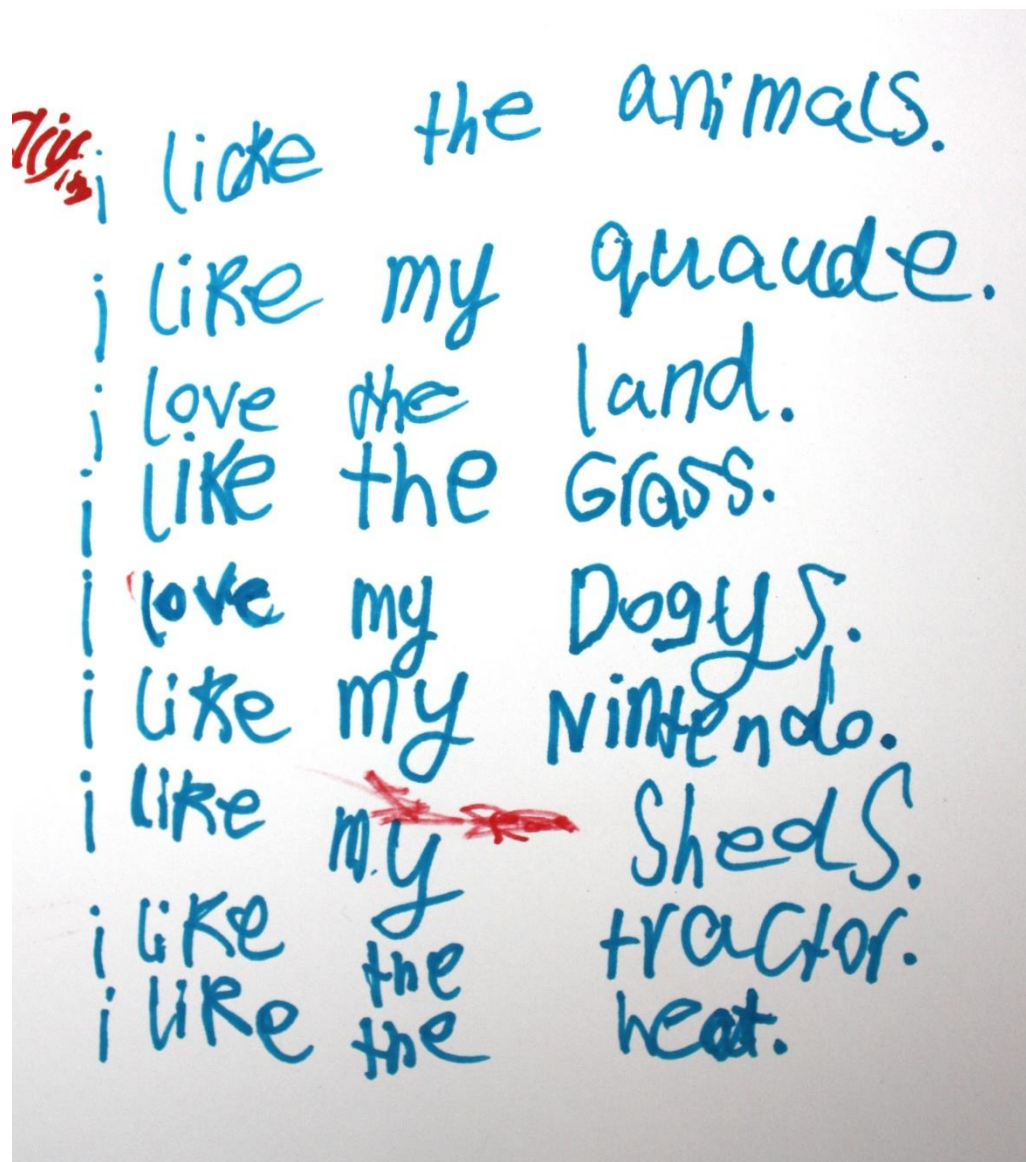 i licke the animals.
i like my quaude.
i love the land.
i like the Grass.
i love my Dogys.
i like my Nintendo.
i like my ShedS.
i like the tractor.
i like the heat.